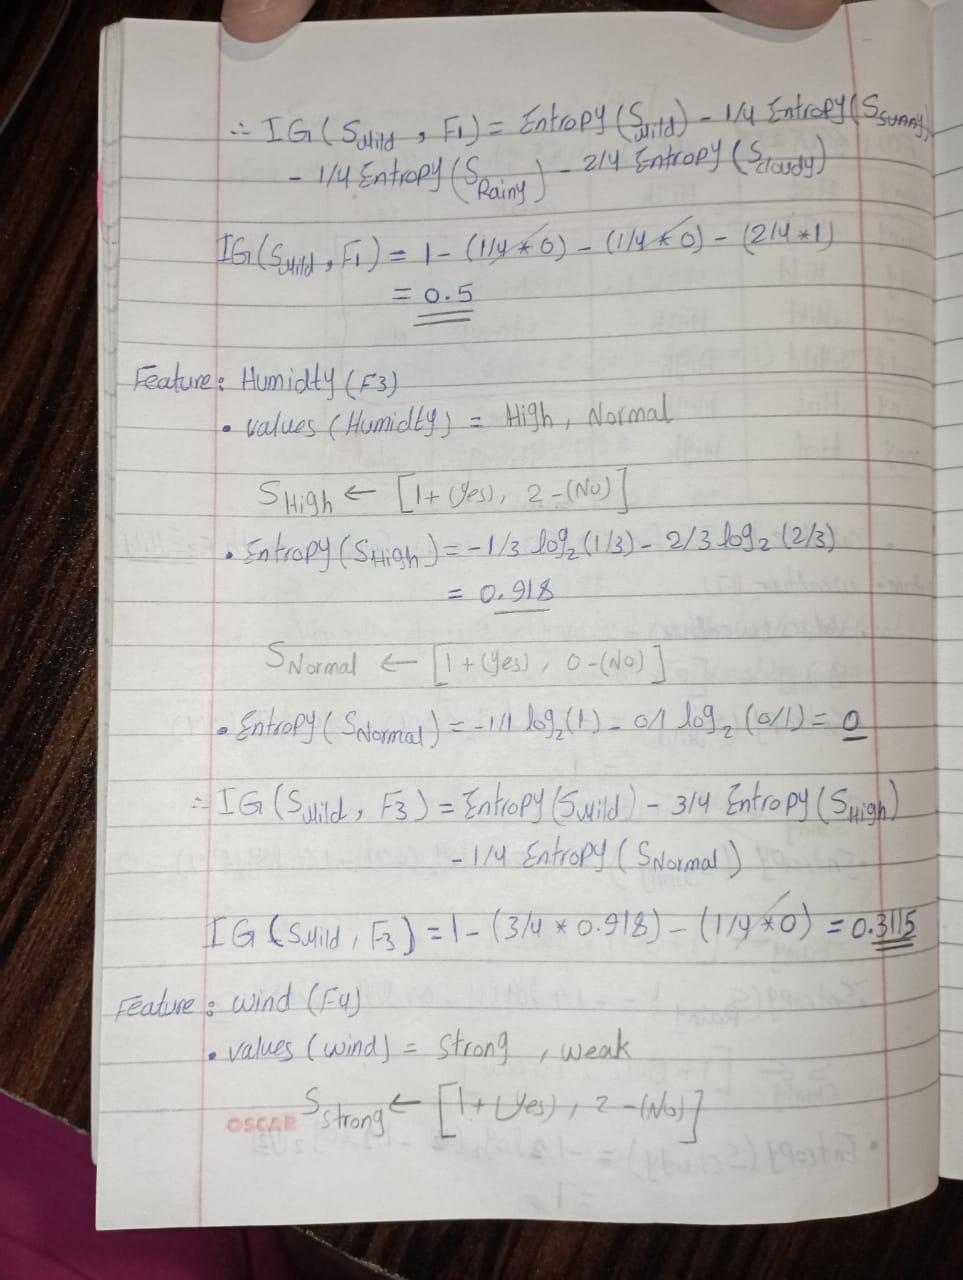 ∴ IG(S_Mild , F1) = Entropy(S_Mild) - 1/4 Entropy(S_Sunny)
- 1/4 Entropy(S_Rainy) - 2/4 Entropy(S_Cloudy)
IG(S_Mild , F1) = 1 - (1/4 * 0) - (1/4 * 0) - (2/4 * 1)
= 0.5
Feature: Humidty (F3)
• values (Humidty) = High, Normal
S_High ← [1+(Yes), 2-(No)]
• Entropy(S_High) = -1/3 log₂(1/3) - 2/3 log₂(2/3)
= 0.918
S_Normal ← [1+(Yes), 0-(No)]
• Entropy(S_Normal) = -1/1 log₂(1) - 0/1 log₂(0/1) = 0
∴ IG(S_Mild , F3) = Entropy(S_Mild) - 3/4 Entropy(S_High)
- 1/4 Entropy(S_Normal)
IG(S_Mild , F3) = 1 - (3/4 * 0.918) - (1/4 * 0) = 0.3115
Feature: wind (F4)
• values (wind) = Strong, weak
S_Strong ← [1+(Yes), 2-(No)]
OSCAR